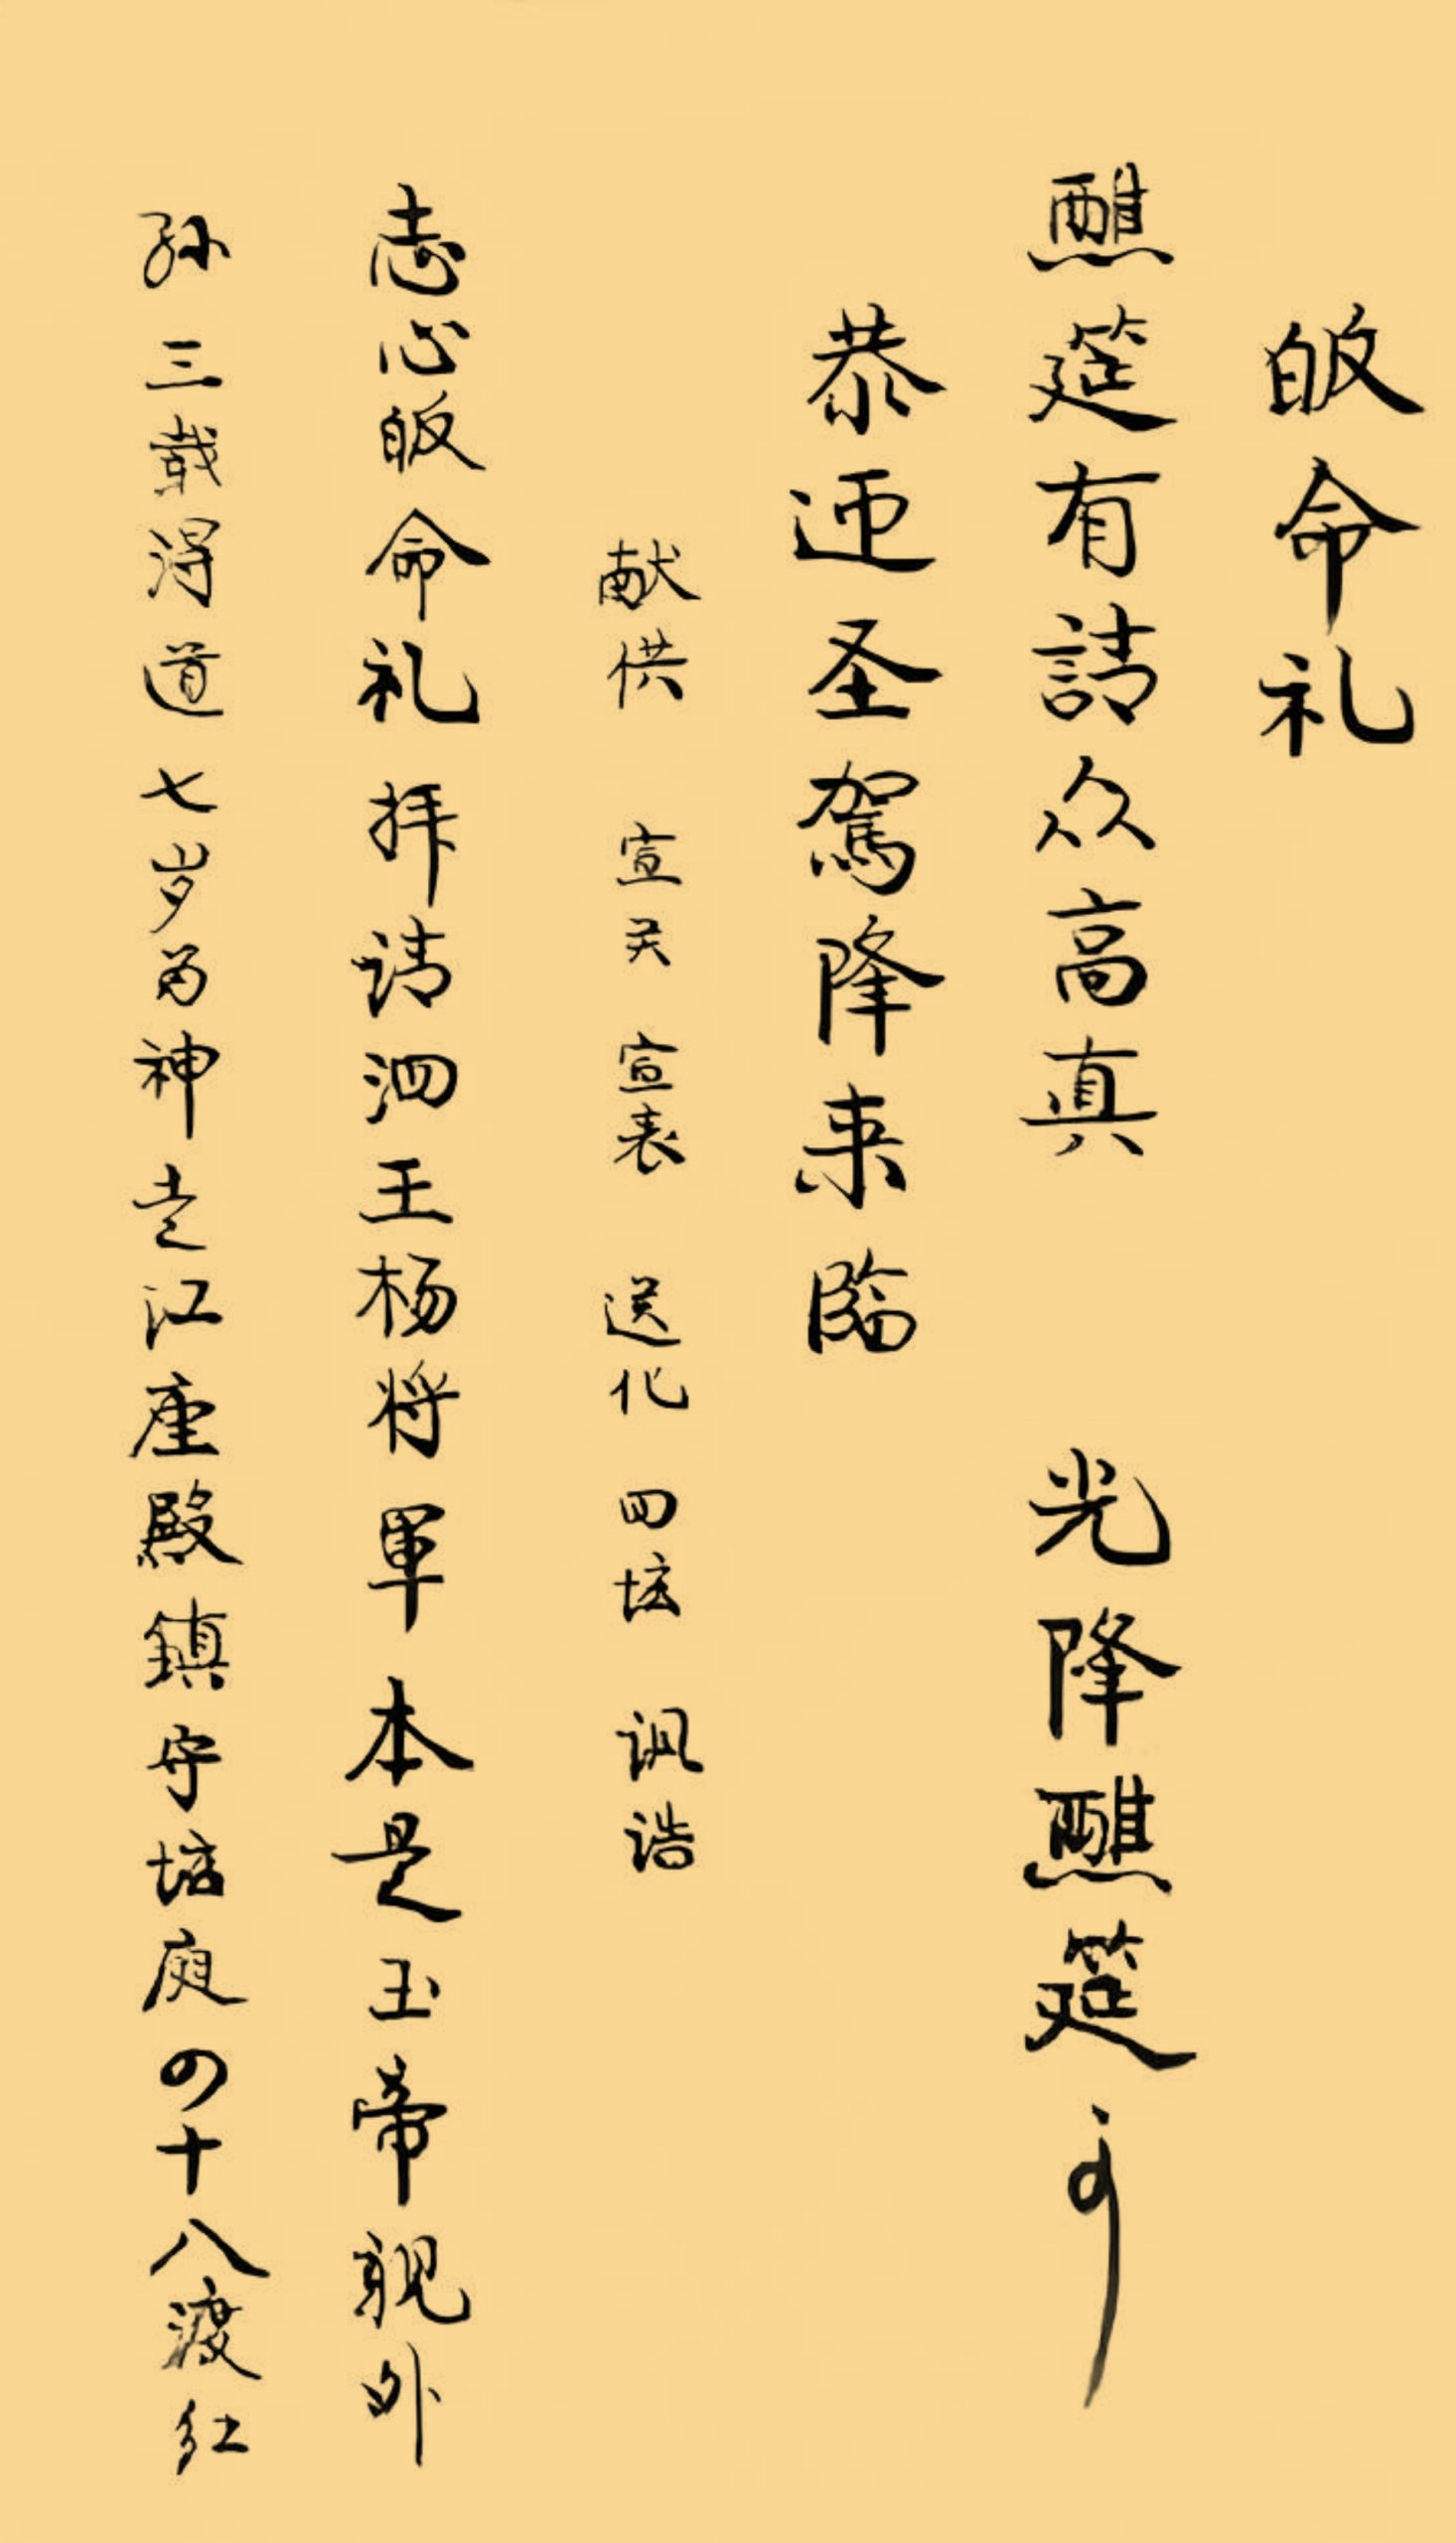 皈命礼
醮筵有請众高真 光降醮筵
恭迎圣駕降来臨
献供 宣关 宣表 送化 回坛 讽诰
志心皈命礼 拜请泗王杨将軍 本是玉帝親外
孙 三歲得道 七岁为神 走江座殿 鎮守坛庭 四十八渡红